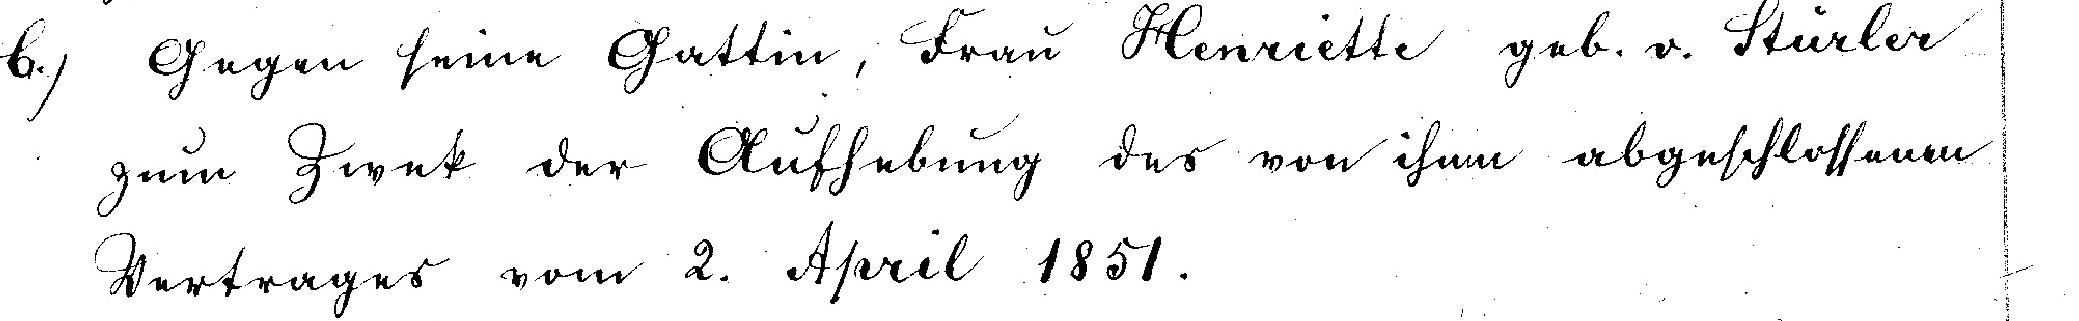 b.) Gegen seine Gattin, Frau Henriette geb. v. Stürler
zum Zwek der Aufhebung des von ihm abgeschlossenen
Vertrages vom 2. April 1851.